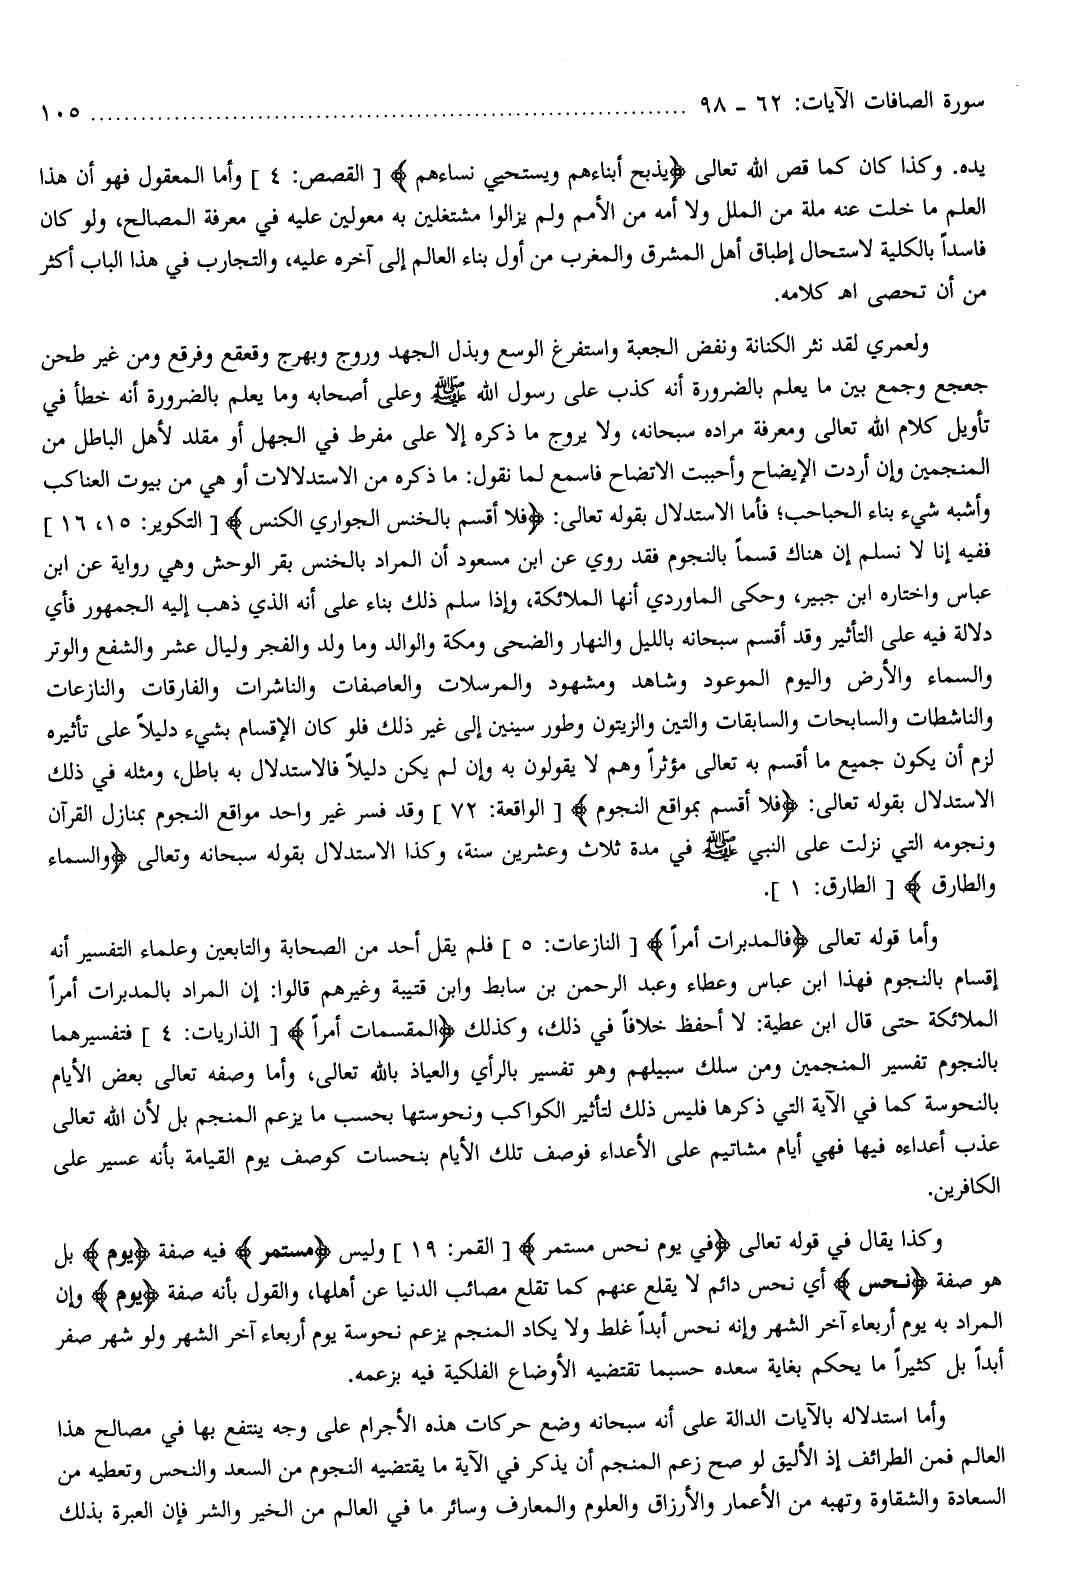 سورة الصافات الآيات: ٦٢ ـ ٩٨ ........................................................................ ١٠٥
يده. وكذا كان كما قص الله تعالى ﴿يذبح أبناءهم ويستحيي نساءهم﴾ [ القصص: ٤ ] وأما المعقول فهو أن هذا
العلم ما خلت عنه ملة من الملل ولا أمه من الأمم ولم يزالوا مشتغلين به معولين عليه في معرفة المصالح، ولو كان
فاسداً بالكلية لاستحال إطباق أهل المشرق والمغرب من أول بناء العالم إلى آخره عليه، والتجارب في هذا الباب أكثر
من أن تحصى اهـ كلامه.
ولعمري لقد نثر الكنانة ونفض الجعبة واستفرغ الوسع وبذل الجهد وروج وبهرج وقعقع وفرقع ومن غير طحن
جعجع وجمع بين ما يعلم بالضرورة أنه كذب على رسول الله ﷺ وعلى أصحابه وما يعلم بالضرورة أنه خطأ في
تأويل كلام الله تعالى ومعرفة مراده سبحانه، ولا يروج ما ذكره إلا على مفرط في الجهل أو مقلد لأهل الباطل من
المنجمين وإن أردت الإيضاح وأحببت الاتضاح فاسمع لما نقول: ما ذكره من الاستدلالات أو هي من بيوت العناكب
وأشبه شيء بناء الحباحب؛ فأما الاستدلال بقوله تعالى: ﴿فلا أقسم بالخنس الجواري الكنس﴾ [ التكوير: ١٥، ١٦ ]
ففيه إنا لا نسلم إن هناك قسماً بالنجوم فقد روي عن ابن مسعود أن المراد بالخنس بقر الوحش وهي رواية عن ابن
عباس واختاره ابن جبير، وحكى الماوردي أنها الملائكة، وإذا سلم ذلك بناء على أنه الذي ذهب إليه الجمهور فأي
دلالة فيه على التأثير وقد أقسم سبحانه بالليل والنهار والضحى ومكة والوالد وما ولد والفجر وليال عشر والشفع والوتر
والسماء والأرض واليوم الموعود وشاهد ومشهود والمرسلات والعاصفات والناشرات والفارقات والنازعات
والناشطات والسابحات والسابقات والتين والزيتون وطور سينين إلى غير ذلك فلو كان الإقسام بشيء دليلاً على تأثيره
لزم أن يكون جميع ما أقسم به تعالى مؤثراً وهم لا يقولون به وإن لم يكن دليلاً فالاستدلال به باطل، ومثله في ذلك
الاستدلال بقوله تعالى: ﴿فلا أقسم بمواقع النجوم﴾ [ الواقعة: ٧٢ ] وقد فسر غير واحد مواقع النجوم بمنازل القرآن
ونجومه التي نزلت على النبي ﷺ في مدة ثلاث وعشرين سنة، وكذا الاستدلال بقوله سبحانه وتعالى ﴿والسماء
والطارق﴾ [ الطارق: ١ ].
وأما قوله تعالى ﴿فالمدبرات أمراً﴾ [ النازعات: ٥ ] فلم يقل أحد من الصحابة والتابعين وعلماء التفسير أنه
إقسام بالنجوم فهذا ابن عباس وعطاء وعبد الرحمن بن سابط وابن قتيبة وغيرهم قالوا: إن المراد بالمدبرات أمراً
الملائكة حتى قال ابن عطية: لا أحفظ خلافاً في ذلك، وكذلك ﴿المقسمات أمراً﴾ [ الذاريات: ٤ ] فتفسيرهما
بالنجوم تفسير المنجمين ومن سلك سبيلهم وهو تفسير بالرأي والعياذ بالله تعالى، وأما وصفه تعالى بعض الأيام
بالنحوسة كما في الآية التي ذكرها فليس ذلك لتأثير الكواكب ونحوستها بحسب ما يزعم المنجم بل لأن الله تعالى
عذب أعداءه فيها فهي أيام مشاتيم على الأعداء فوصف تلك الأيام بنحسات كوصف يوم القيامة بأنه عسير على
الكافرين.
وكذا يقال في قوله تعالى ﴿في يوم نحس مستمر﴾ [ القمر: ١٩ ] وليس ﴿مستمر﴾ فيه صفة ﴿يوم﴾ بل
هو صفة ﴿نحس﴾ أي نحس دائم لا يقلع عنهم كما تقلع مصائب الدنيا عن أهلها، والقول بأنه صفة ﴿يوم﴾ وإن
المراد به يوم أربعاء آخر الشهر وإنه نحس أبداً غلط ولا يكاد المنجم يزعم نحوسة يوم أربعاء آخر الشهر ولو شهر صفر
أبداً بل كثيراً ما يحكم بغاية سعده حسبما تقتضيه الأوضاع الفلكية فيه بزعمه.
وأما استدلاله بالآيات الدالة على أنه سبحانه وضع حركات هذه الأجرام على وجه ينتفع بها في مصالح هذا
العالم فمن الطرائف إذ الأليق لو صح زعم المنجم أن يذكر في الآية ما يقتضيه النجوم من السعد والنحس وتعطيه من
السعادة والشقاوة وتهبه من الأعمار والأرزاق والعلوم والمعارف وسائر ما في العالم من الخير والشر فإن العبرة بذلك